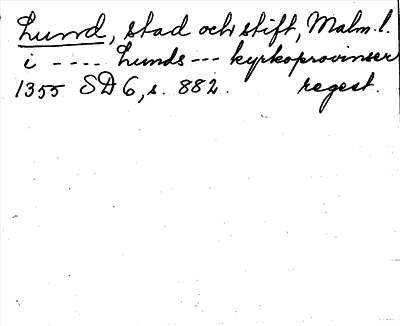 Lund, stad och stift, Malm. l.
i ---- Lunds --- kyrkoprovinser
1355 SD 6, s. 882. regest.